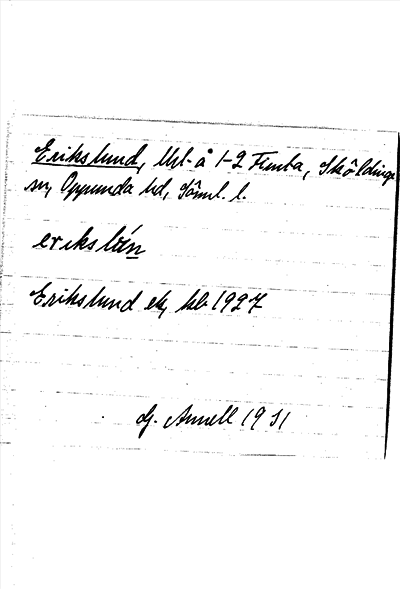 Erikslund, lht. å 1-2 Fimta, Sköldinge
sn, Oppunda hd, Söml. l.
erikslún
Erikslund ek, hl 1927
G. Annell 1931